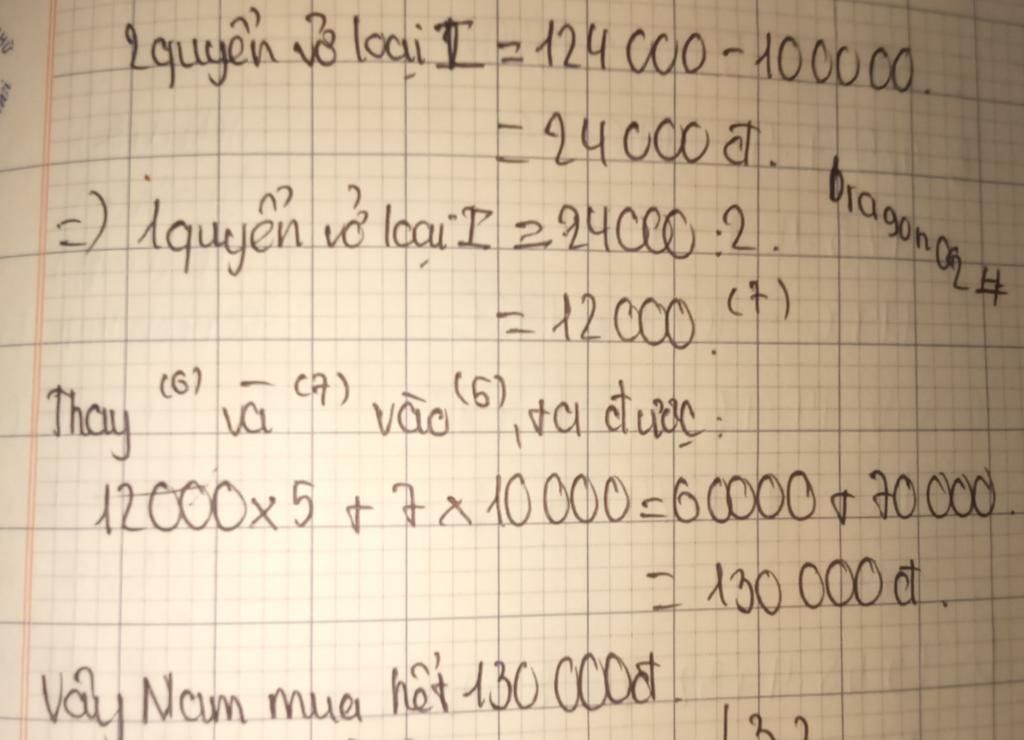 2 quyển vở loại I = 124 000 - 100000.
= 24000 đ.
=) 1 quyển vở loại I = 24000 : 2.
= 12 000. (7)
Dragon 02 #
Thay (6) và (7) vào (5), ta được:
12000 x 5 + 7 x 10 000 = 60000 + 70 000.
= 130 000 đ.
Vậy Nam mua hết 130 000đ.